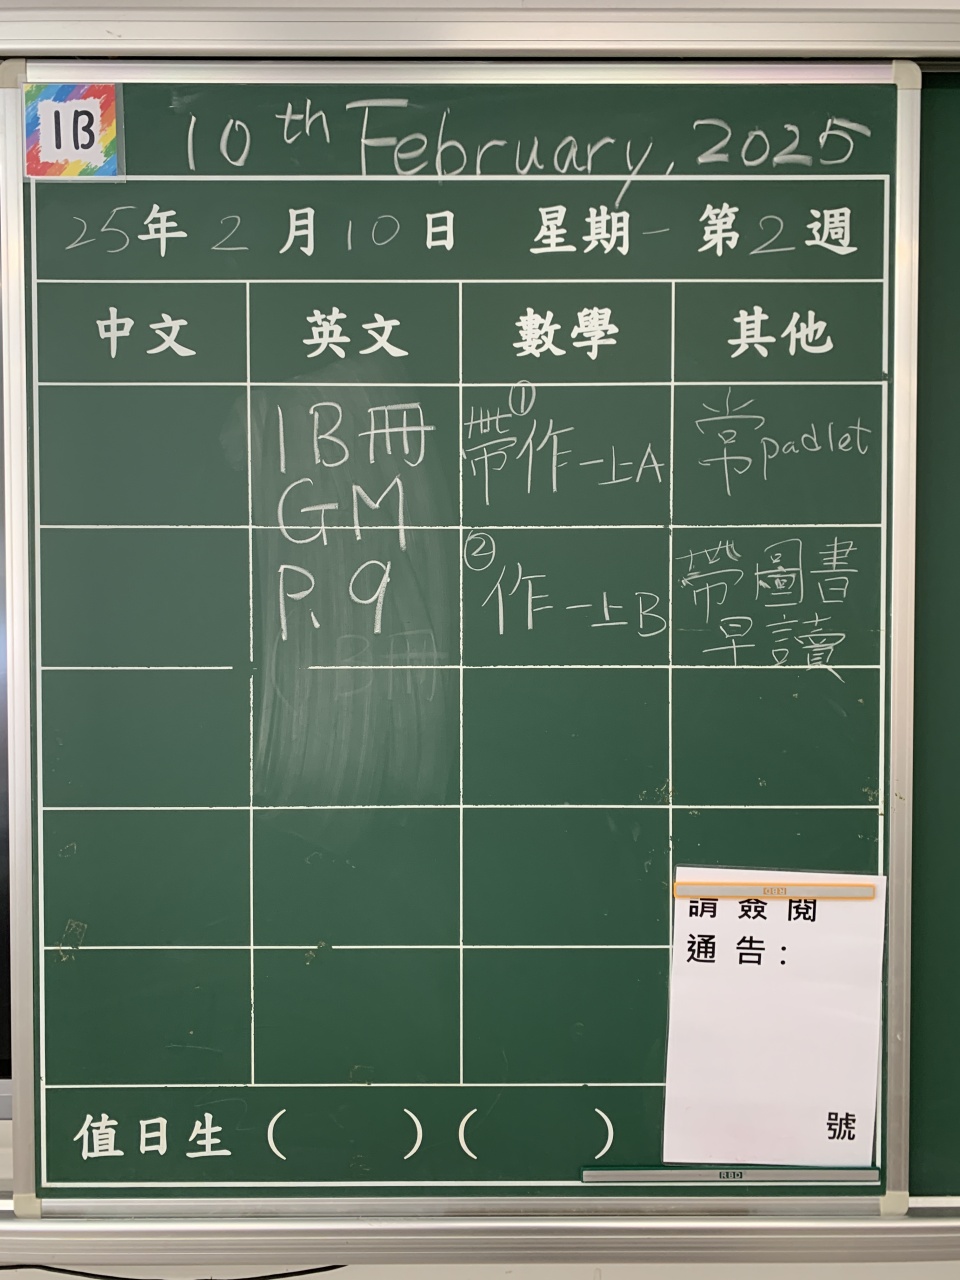 1B
10th February, 2025
25年2月10日 星期一 第2週
中文 英文 數學 其他
1B冊
GM
P.9
①
帶作一上A
②
作一上B
常padlet
帶圖書
早讀
請簽閱
通告：
號
值日生（ ）（ ）
RBD